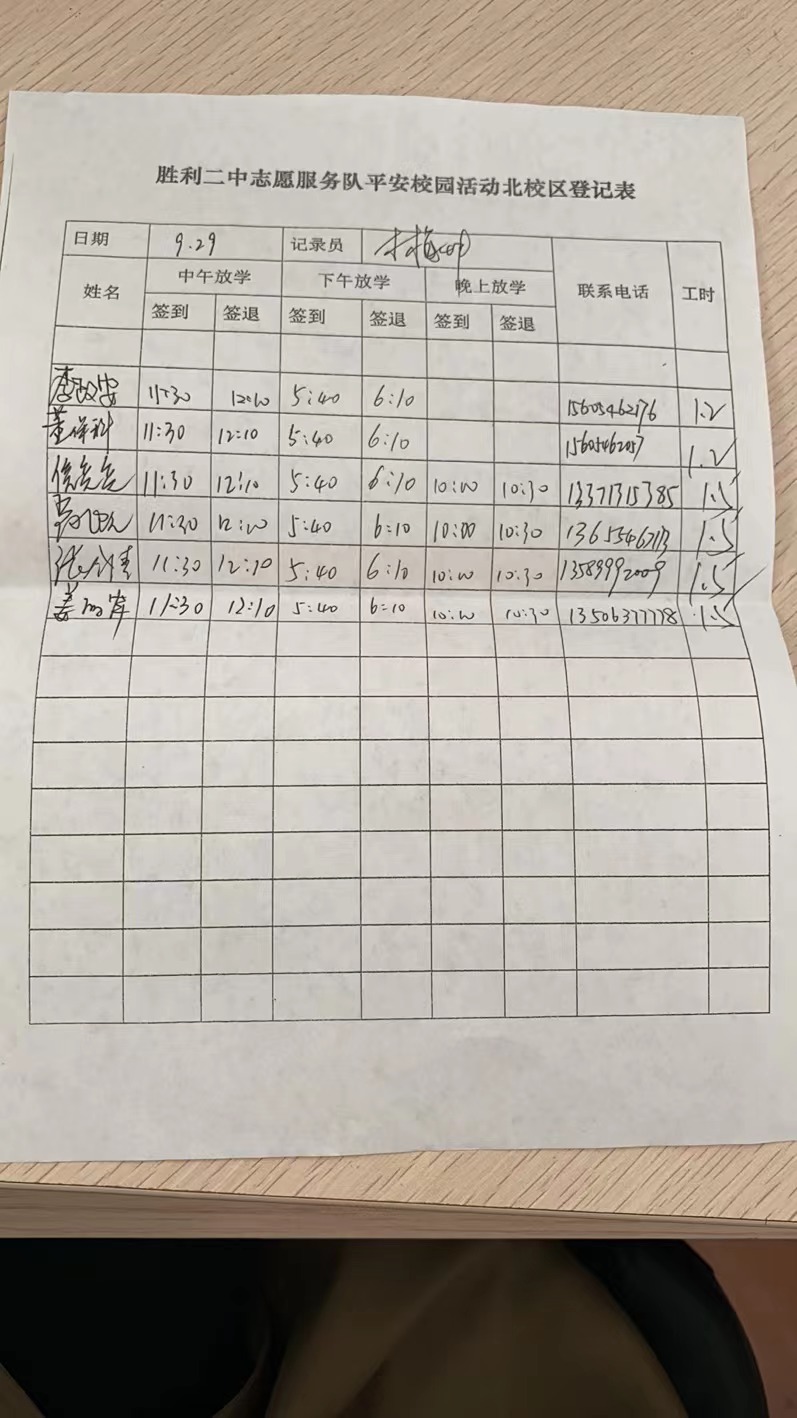 胜利二中志愿服务队平安校园活动北校区登记表
日期 9.29 记录员
姓名 中午放学 下午放学 晚上放学 联系电话 工时
签到 签退 签到 签退 签到 签退
11:30 12:10 5:40 6:10 15605462176 1.2
11:30 12:10 5:40 6:10 1.2
11:30 12:10 5:40 6:10 10:00 10:30 13371315385 1.5
11:30 12:00 5:40 6:10 10:00 10:30 1.5
11:30 12:10 5:40 6:10 10:00 10:30 13589992009 1.5
11:30 12:10 5:40 6:10 10:00 10:30 13506377778 1.5